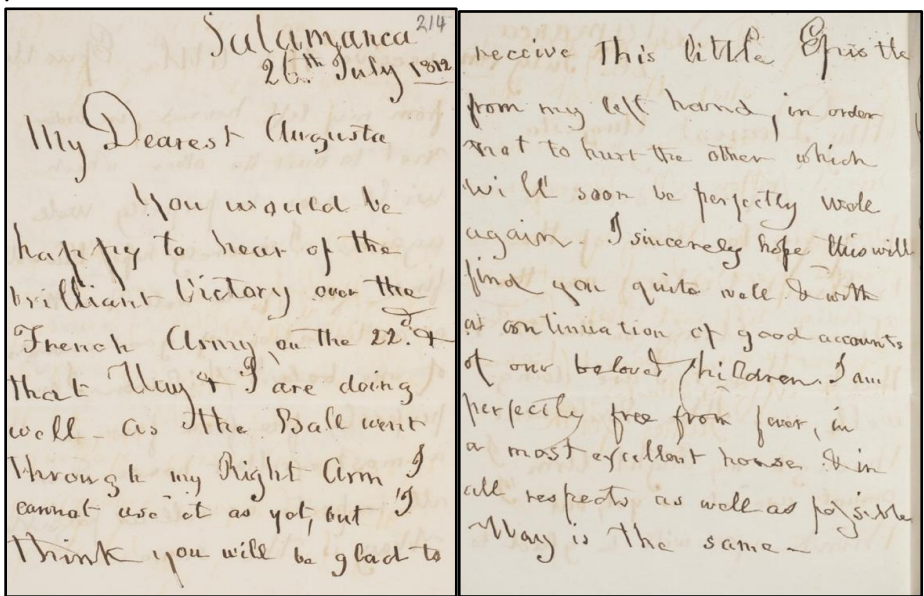 214
Salamanca
26th July 1812
My Dearest Augusta
You would be
happy to hear of the
brilliant Victory over the
French Army on the 22d. &
that May & I are doing
well - as the Ball went
through my Right Arm I
cannot use it as yet, but I
think you will be glad to
receive this little Epistle
from my left hand, in order
not to hurt the other which
will soon be perfectly well
again. I sincerely hope this will
find you quite well & with
a continuation of good accounts
of our beloved Children. I am
perfectly free from fever, in
a most excellent house & in
all respects as well as possible
May is the same -